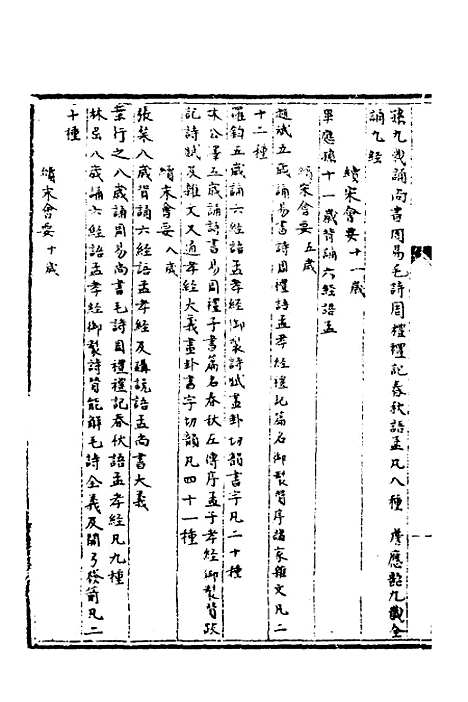 孫九歲誦尚書周易毛詩周禮禮記春秋語孟凡八種 應懿九歲全
誦九經
續宋會要十一歲
畢應瓌十一歲背誦六經語孟
續宋會要五歲
趙斌五歲誦易書詩周禮語孟孝經禮記篇名御製贊序諸家雜文凡二
十二種
羅鈞五歲誦六經語孟孝經御製詩賦畫卦切韻書字凡二十種
林公澤五歲誦詩書易周禮子書篇名春秋左傳序孟子孝經御製贊跋
記詩賦及雜文又通孝經大義畫卦書字切韻凡四十一種
續宋會要八歲
張葉八歲背誦六經語孟孝經及講說語孟尚書大義
葉行之八歲誦周易尚書毛詩周禮禮記春秋語孟孝經凡九種
林呂八歲誦六經語孟孝經御製詩贊能解毛詩全義及開弓發箭凡二
十種
續宋會要十歲